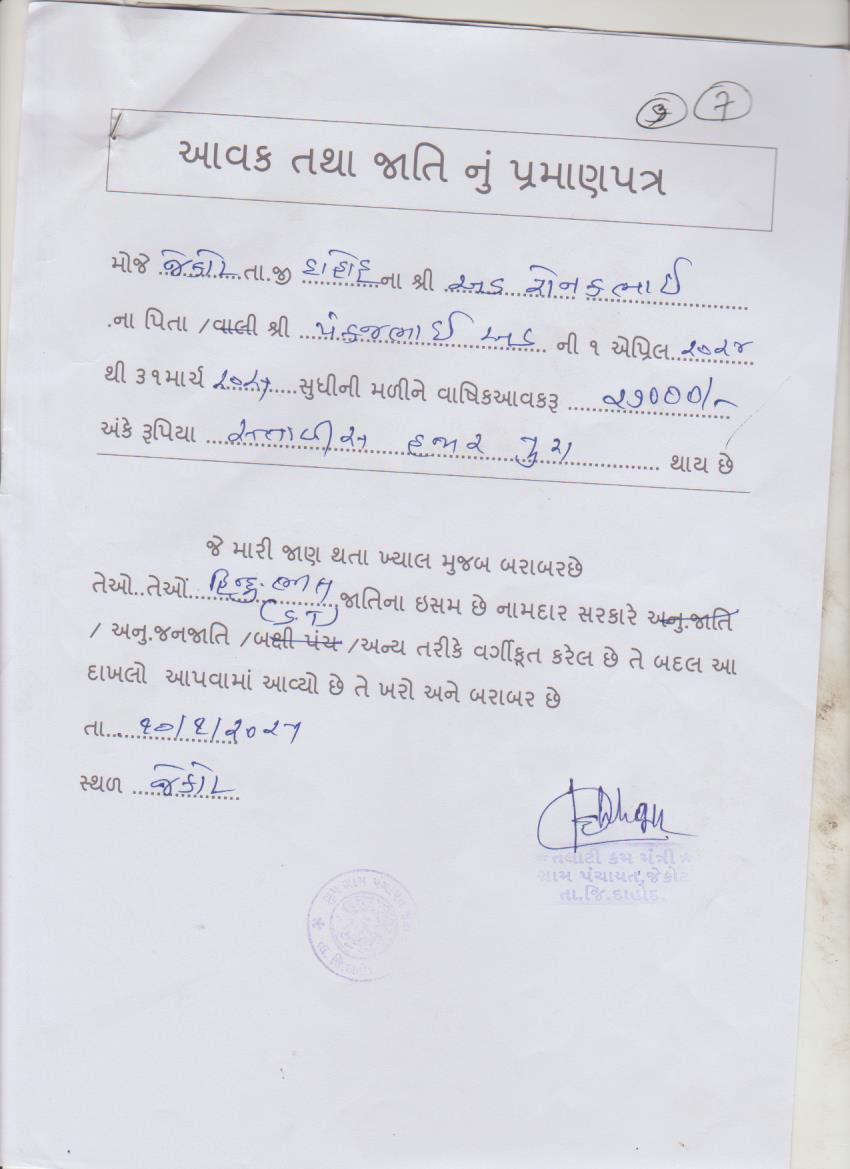 ૭ 7
આવક તથા જાતિ નું પ્રમાણપત્ર
મોજે જેકોટ તા.જી દાહોદ ના શ્રી રોનકભાઈ
.ના પિતા /વાલી શ્રી પંકજભાઈ ની ૧ એપ્રિલ ૨૦૨૪
થી ૩૧માર્ચ ૨૦૨૫ સુધીની મળીને વાષિકઆવકરૂ ૨૭૦૦૦/-
અંકે રૂપિયા સત્તાવીસ હજાર પુરા થાય છે
જે મારી જાણ થતા ખ્યાલ મુજબ બરાબરછે
તેઓ..તેઓં હિન્દુ ભીલ જાતિના ઇસમ છે નામદાર સરકારે અનુ.જાતિ
(S.T)
/ અનુ.જનજાતિ /બક્ષી પંચ /અન્ય તરીકે વર્ગીકૂત કરેલ છે તે બદલ આ
દાખલો આપવામાં આવ્યો છે તે ખરો અને બરાબર છે
તા.. ૧૦/૬/૨૦૨૫
સ્થળ જેકોટ
તલાટી કમ મંત્રી
ગ્રામ પંચાયત,જેકોટ
તા.જિ.દાહોદ.
ગ્રામ પંચાયત